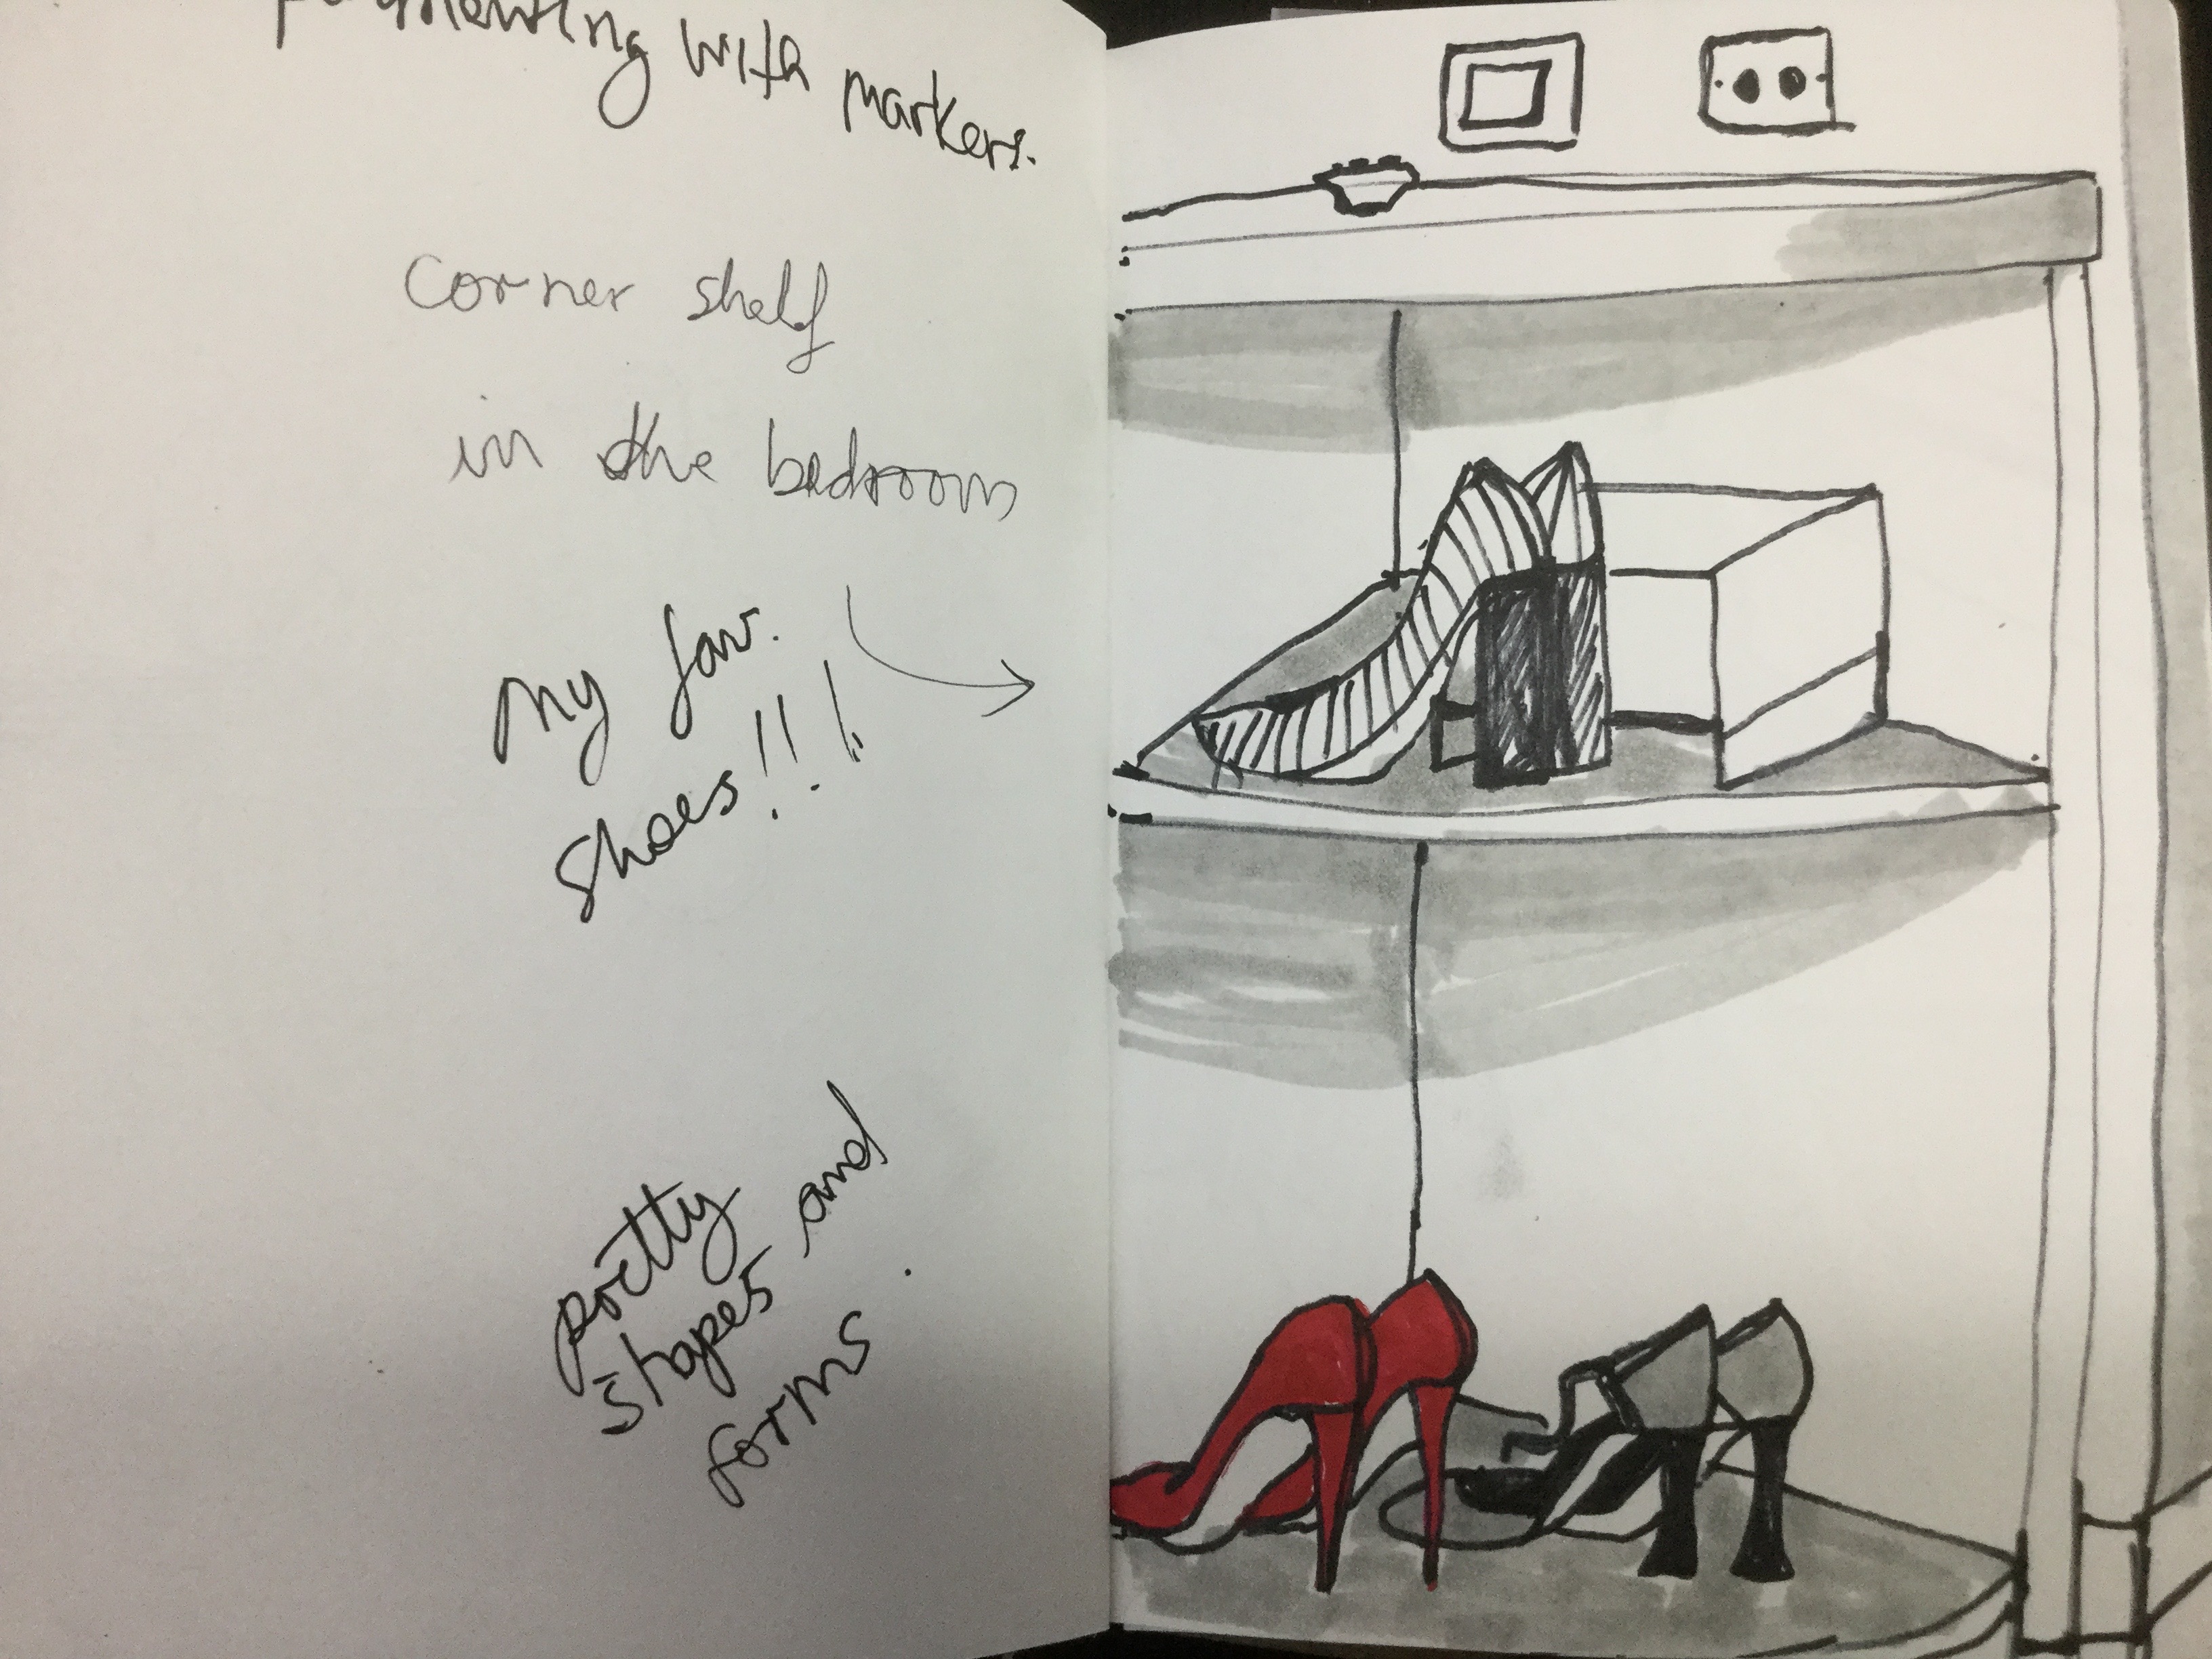 with markers.
corner shelf
in the bedroom
My fav.
shoes!!!
pretty
shapes and
forms.